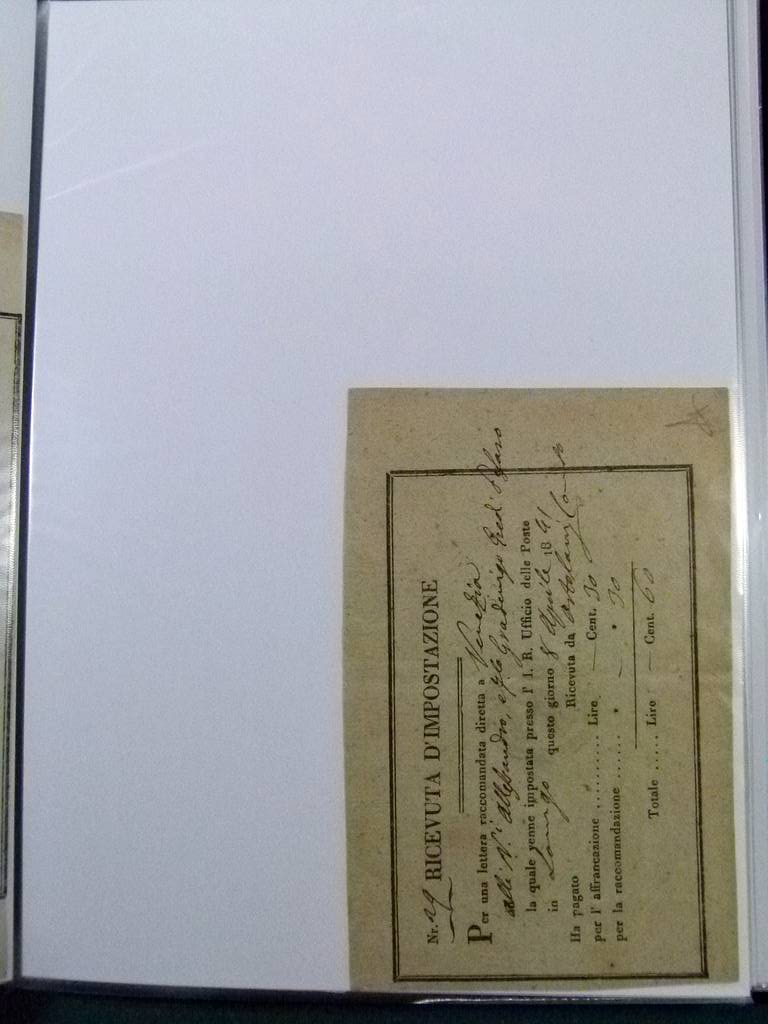 Nr. 29 RICEVUTA D'IMPOSTAZIONE
Per una lettera raccomandata diretta a Venezia
alli N. i Allessandro, e
la quale venne impostata presso l' I. R. Ufficio delle Poste
in Lonigo questo giorno 8 Aprile 1861
Ha pagato Ricevuta da
per l' affrancazione .......... Lire — Cent. 30
per la raccomandazione ...... " — " 30
Totale ..... Lire — Cent. 60